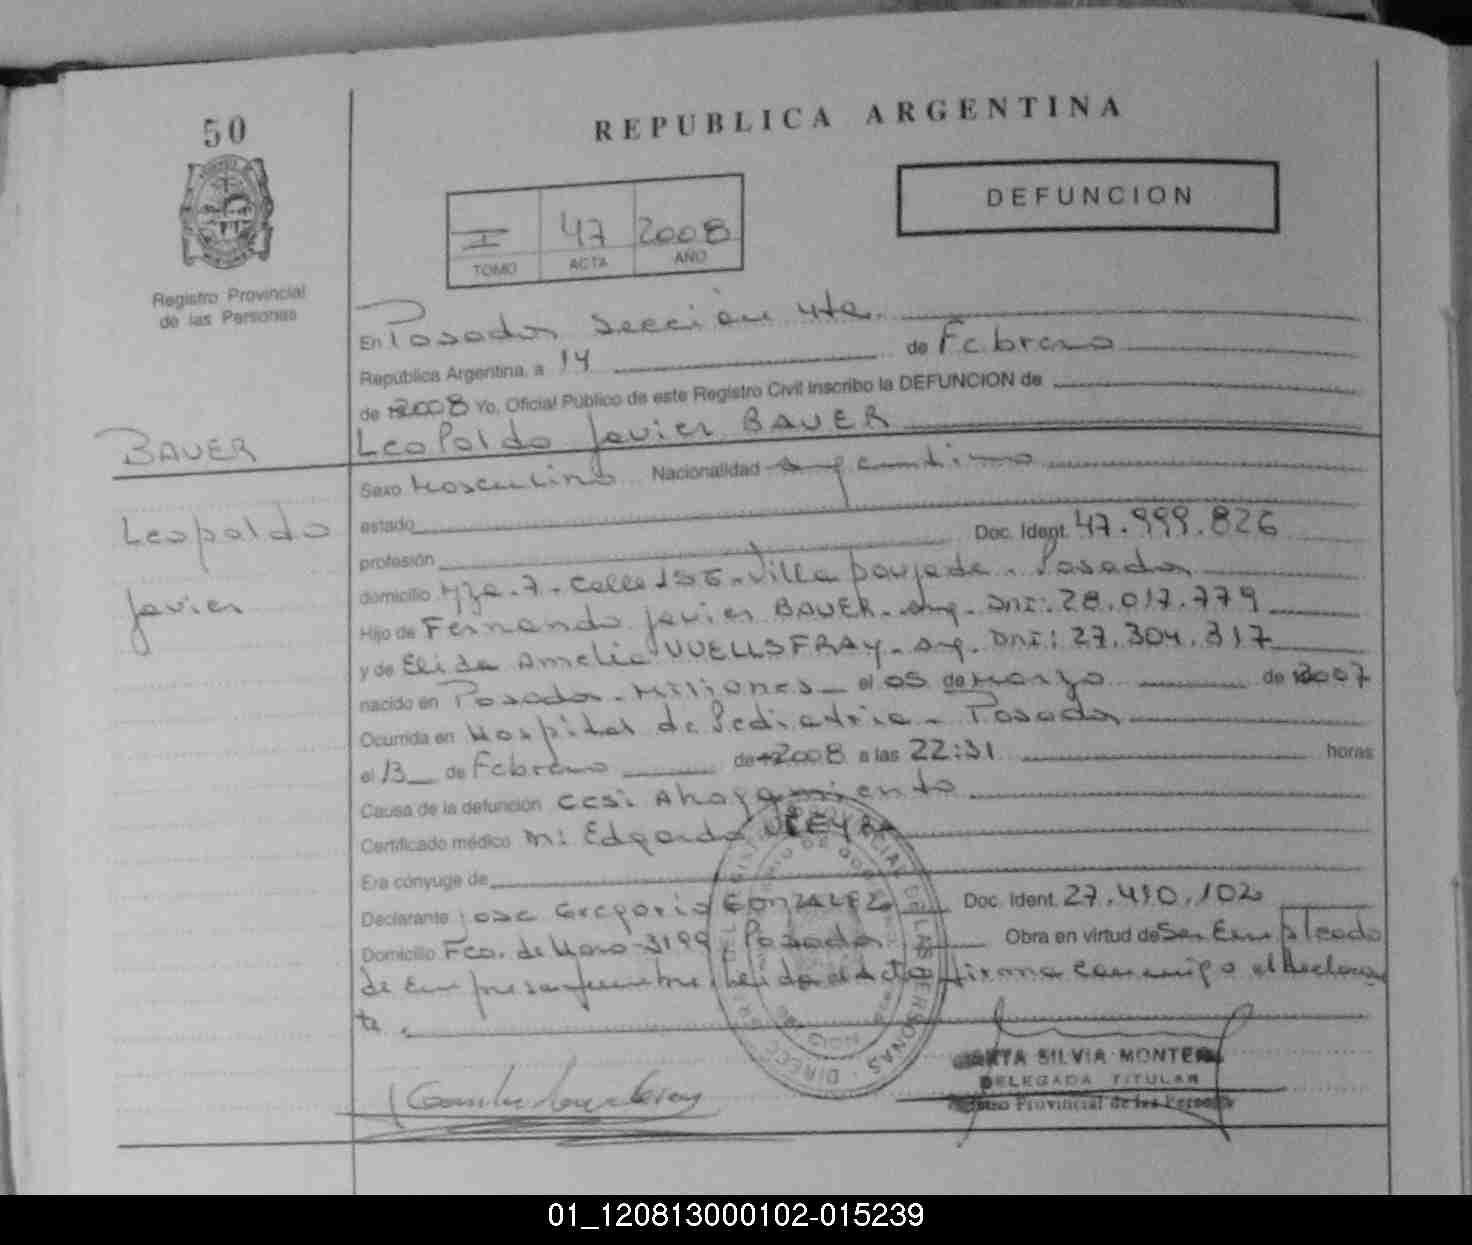 50
REPUBLICA ARGENTINA
DEFUNCION
I 47 2008
TOMO ACTA AÑO
Registro Provincial
de las Personas
En Posadas Sección 4ta.
República Argentina, a 14 de Febrero
de 2008 Yo, Oficial Público de este Registro Civil inscribo la DEFUNCION de
BAUER
Leopoldo Javier BAUER
Sexo Masculino Nacionalidad argentina
Leopoldo
estado
Doc. Ident. 47.999.826
profesión
domicilio Mza. 7 - Calle 155 - Villa Poujade - Posadas
Javier
Hijo de Fernando Javier BAUER - arg. DNI: 28.017.779
y de Elida Amelia VUELLSFRAY - arg. DNI: 27.304.317
nacido en Posadas - Misiones - el 05 de Marzo de 2007
Ocurrida en Hospital de Pediatria - Posadas
el 13 de Febrero de 2008 a las 22:31 horas
Causa de la defunción Ahogamiento
Certificado médico Edgardo
Era cónyuge de
Declarante Jose Gregorio GONZALEZ Doc. Ident. 27.410.102
Domicilio Fco. de Haro 3199 Posadas Obra en virtud de Ser Empleado
de Empresa funebre, leida el Acta firma conmigo el declaran
te.
SILVIA MONTE
DELEGADA TITULAR
Provincial de las Personas
01_120813000102-015239